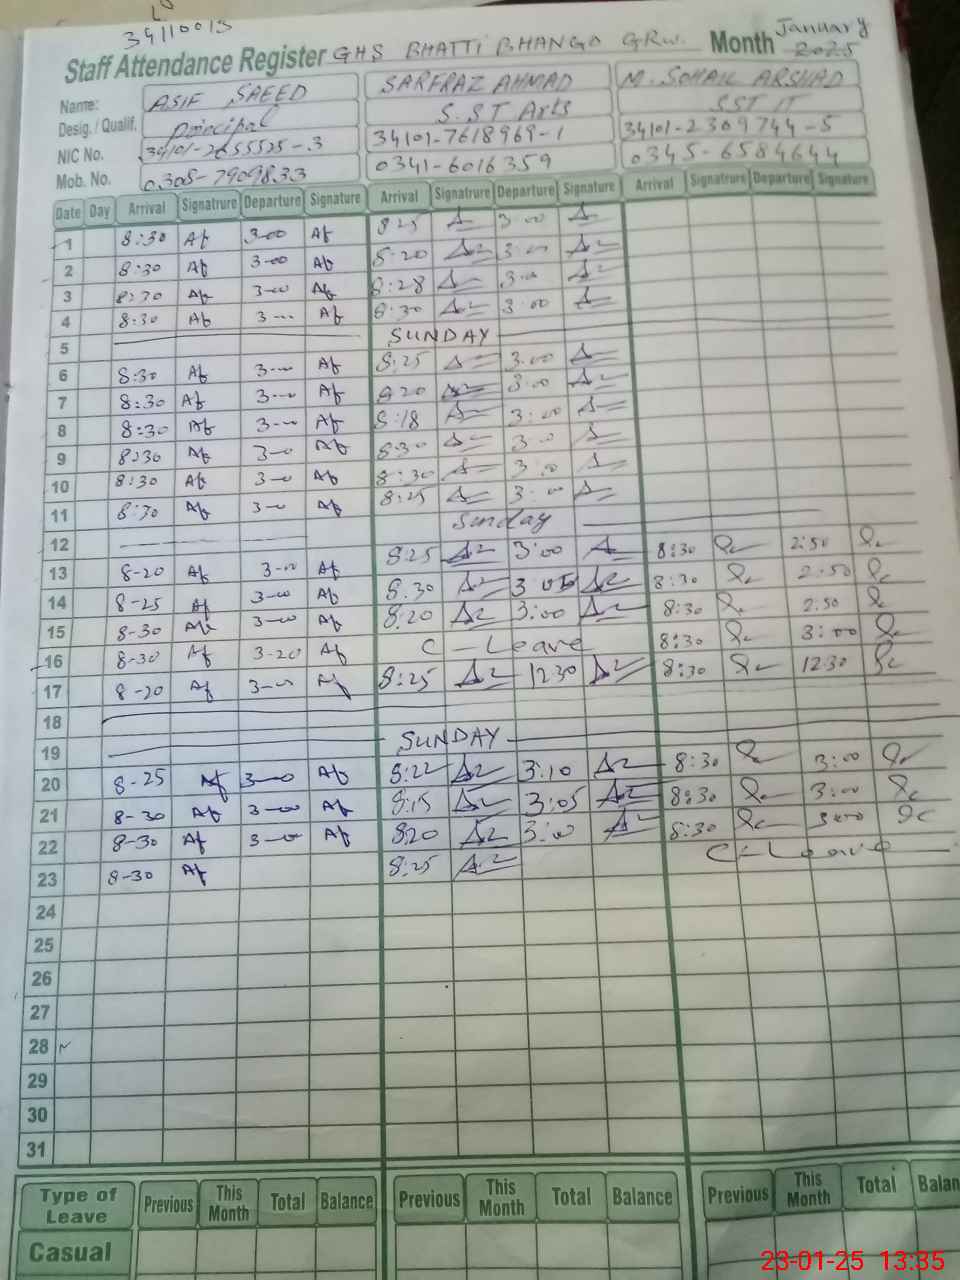 34110015
Staff Attendance Register GHS BHATTI BHANGO GRW. Month January 2025
Name: ASIF SAEED SARFRAZ AHMAD M. SOHAIL ARSHAD
Desig. / Qualif. Principal S.ST Arts SST IT
NIC No. 34101-2655525-3 34101-7618969-1 34101-2309744-5
Mob. No. 0305-7909833 0341-6016359 0345-6584644
Date Day Arrival Signatrure Departure Signature Arrival Signatrure Departure Signature Arrival Signatrure Departure Signature
1 8:30 Af 3-00 Af 8:25 3:00
2 8:30 Af 3-00 Af 8:20 3:00
3 8:30 Af 3-00 Af 8:28 3:00
4 8:30 Af 3-- Af 8:30 3:00
5 SUNDAY
6 8:30 Af 3-- Af 8:25 3:00
7 8:30 Af 3-- Af 8:20 3:00
8 8:30 Af 3-- Af 8:18 3:00
9 8:30 Af 3-0 Af 8:30 3:0
10 8:30 Af 3-0 Af 8:30 3:0
11 8:30 Af 3-0 Af 8:25 3:00
12 Sunday
13 8-20 Af 3-00 Af 8:25 3:00 8:30 2:50
14 8-25 Af 3-00 Af 8:30 3:05 8:30 2:50
15 8-30 Af 3-00 Af 8:20 3:00 8:30 2:50
16 8-30 Af 3-20 Af C-Leave 8:30 3:00
17 8-20 Af 3-00 Af 8:25 12:30 8:30 12:30
18
19 SUNDAY
20 8-25 Af 3-0 Af 8:22 3:10 8:30 3:00
21 8-30 Af 3-00 Af 8:15 3:05 8:30 3:00
22 8-30 Af 3-0 Af 8:20 3:00 8:30 3:00
23 8-30 Af 8:25 C-Leave
24
25
26
27
28
29
30
31
Type of Leave Previous This Month Total Balance Previous This Month Total Balance Previous This Month Total Balan
Casual
23-01-25 13:35